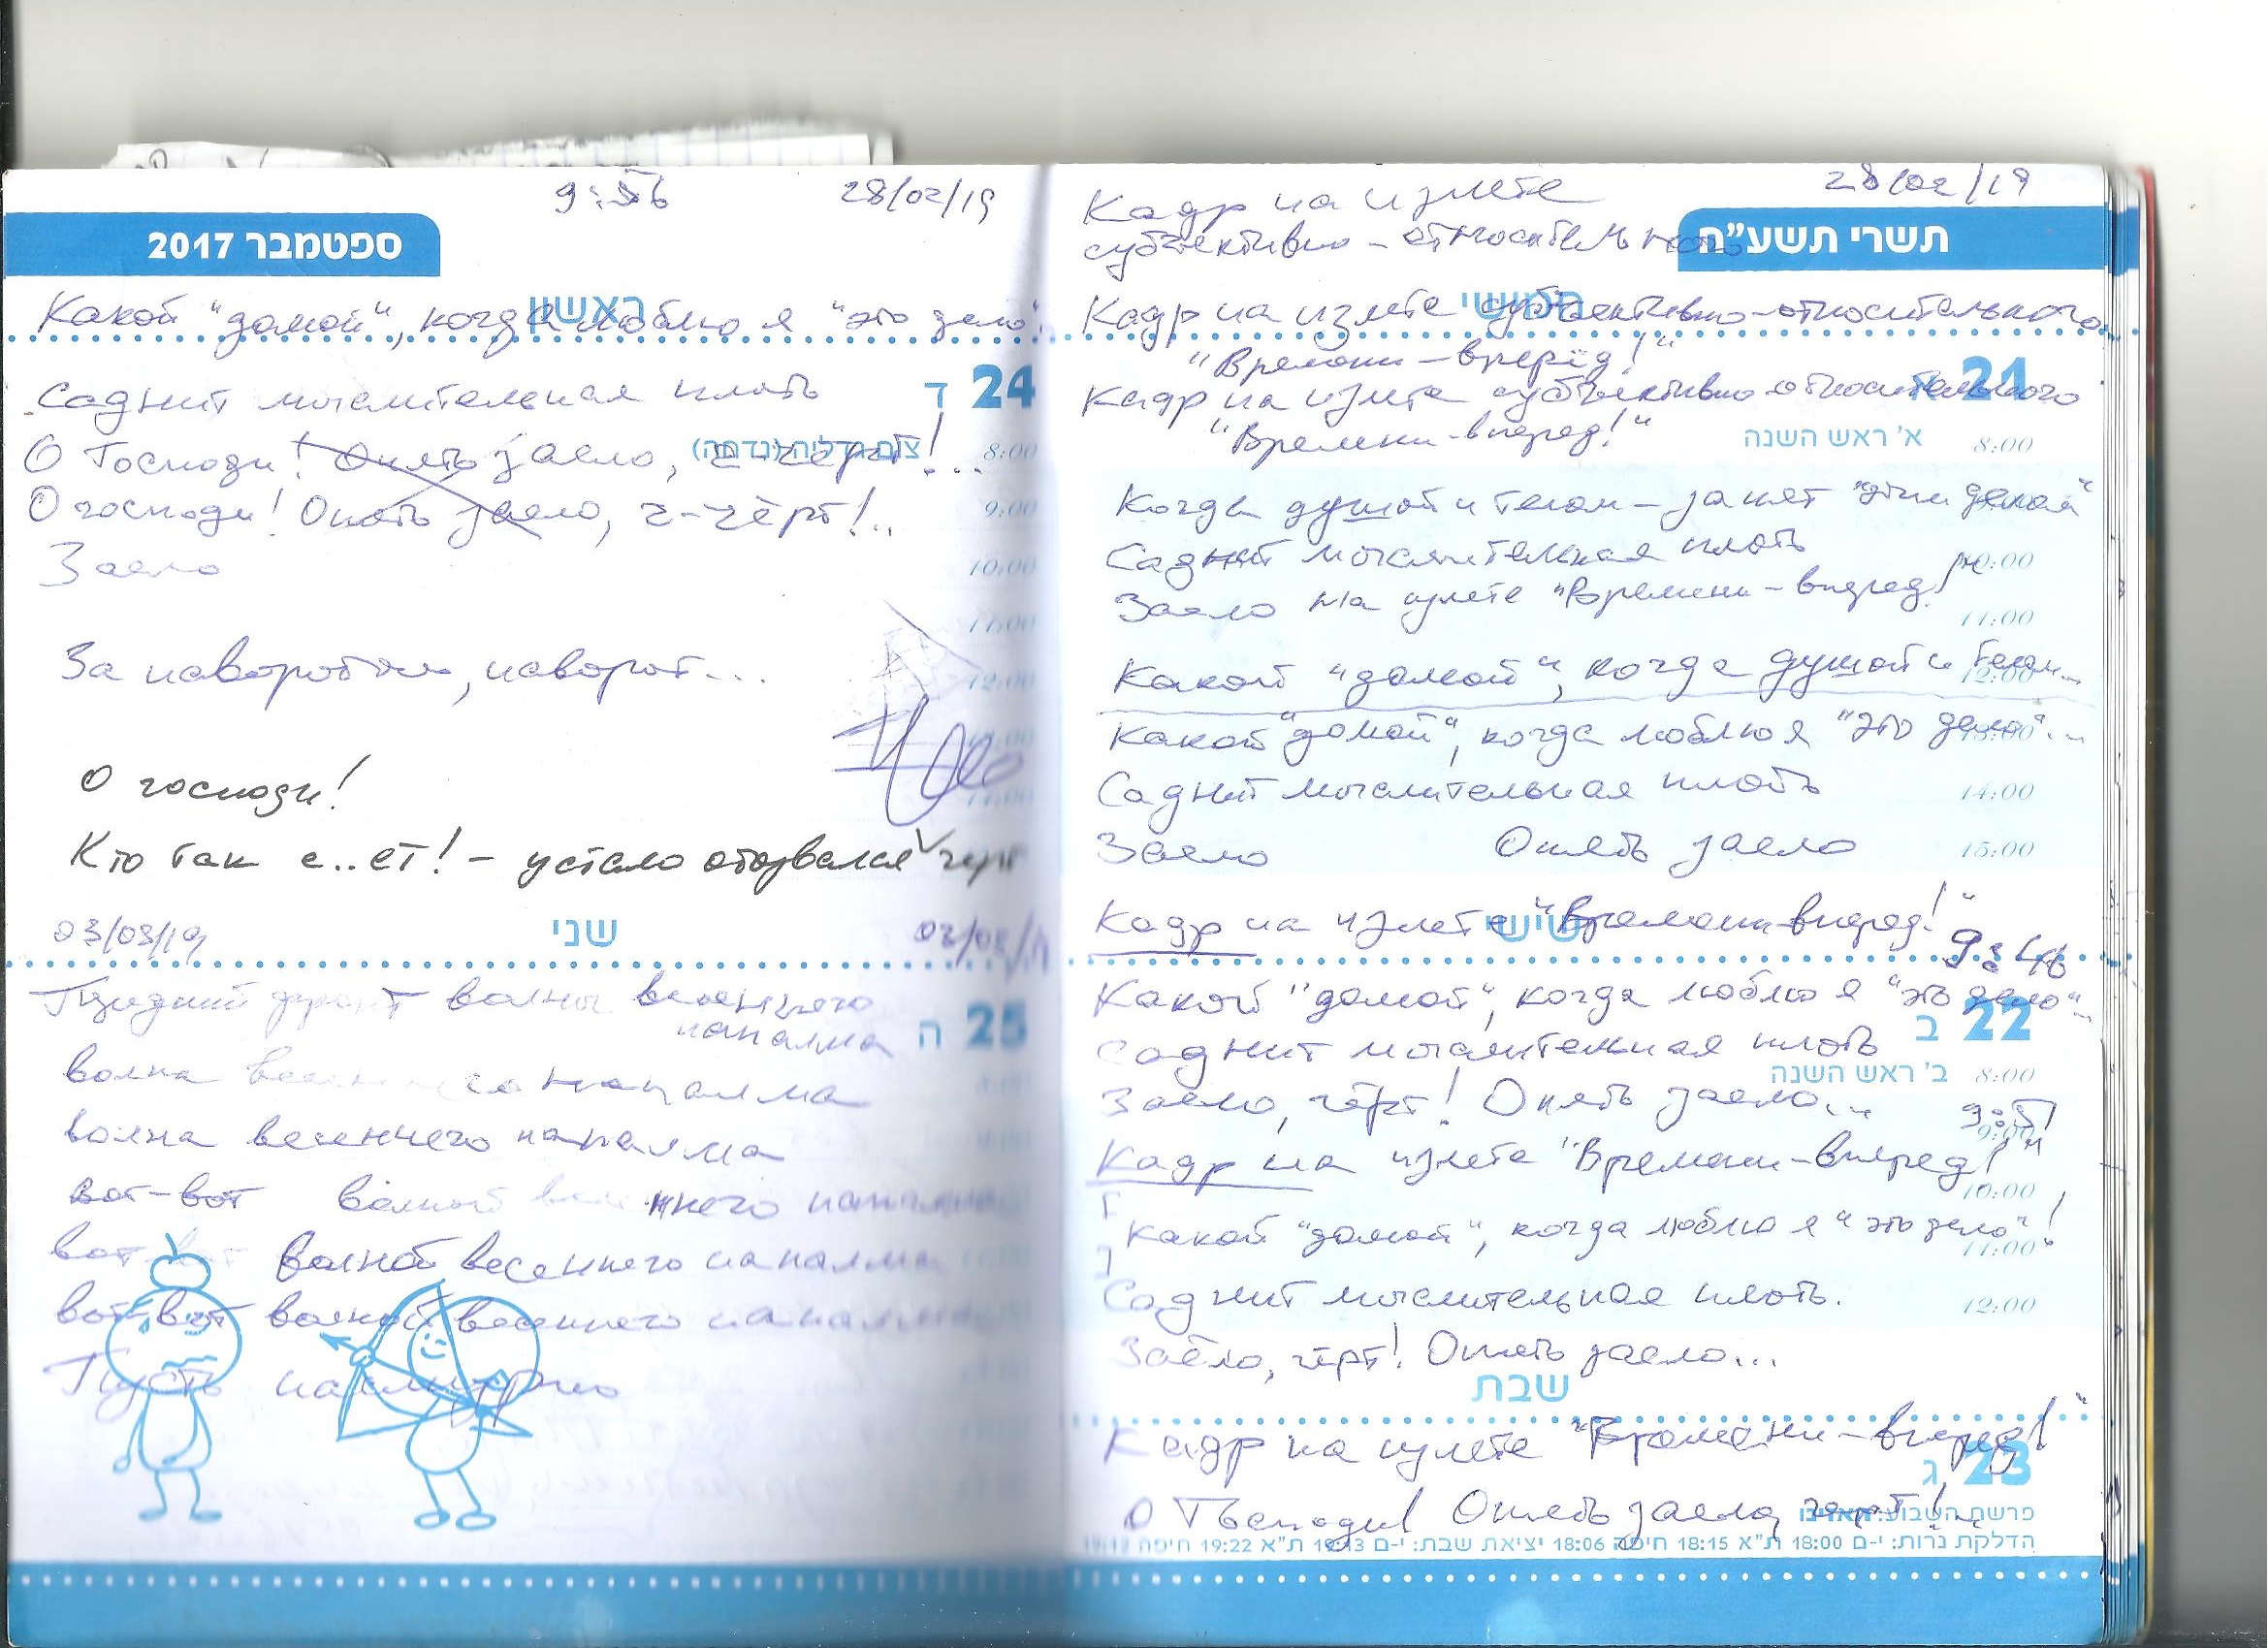 9:56 28/02/19
ספטמבר 2017
ראשון
Какой "домой", когда люблю я "это дело"
24 ד
Саднит мыслительная плоть
צום גדליה (נדחה)
8:00
О Господи! Опять заело, ч-черт!...
9:00
О господи! Опять заело, ч-чёрт!..
10:00
Заело
11:00
За наворотом, наворот...
12:00
О господи!
Кто так с..ет! – устало отозвался черт
03/03/19 שני 03/03/19
25 ה
фронт волны весеннего
напалма
волна весеннего напалма
волна весеннего напалма
вот-вот волной весеннего напалма
вот-вот волной весеннего напалма
вот-вот волной весеннего напалма
Пусть
28/02/19
תשרי תשע"ח
Кадр на излёте
субъективно – относительного
חמישי
Кадр на излете субъективно-относительного
"Времени – вперёд!"
21 א
Кадр на излете субъективно-относительного
"Времени-вперед!"
א' ראש השנה 8:00
Когда душой и телом – за
Саднит мыслительная плоть
10:00
Заело на излете "Времени – вперед!"
11:00
Какой "домой", когда душой и телом...
12:00
Какой "домой", когда люблю я "это дело"...
13:00
Саднит мыслительная плоть
14:00
Заело Опять заело
15:00
שישי
Кадр на излете "Времени-вперед!"
9:46
Какой "домой", когда люблю я "это дело"...
22 ב
Саднит мыслительная плоть
ב' ראש השנה 8:00
Заело, чёрт! Опять заело...
9:51
9:00
Кадр на излете "Времени-вперед!"
10:00
Какой "домой", когда люблю я "это дело"!
11:00
Саднит мыслительная плоть.
12:00
Заело, чёрт! Опять заело...
שבת
Кадр на излете "Времени – вперед!"
23 ג
О Господи! Опять заело, черт!..
פרשת השבוע: האזינו
הדלקת נרות: י-ם 18:00 ת"א 18:15 חיפה 18:06 יציאת שבת: י-ם 19:13 ת"א 19:22 חיפה 19:12